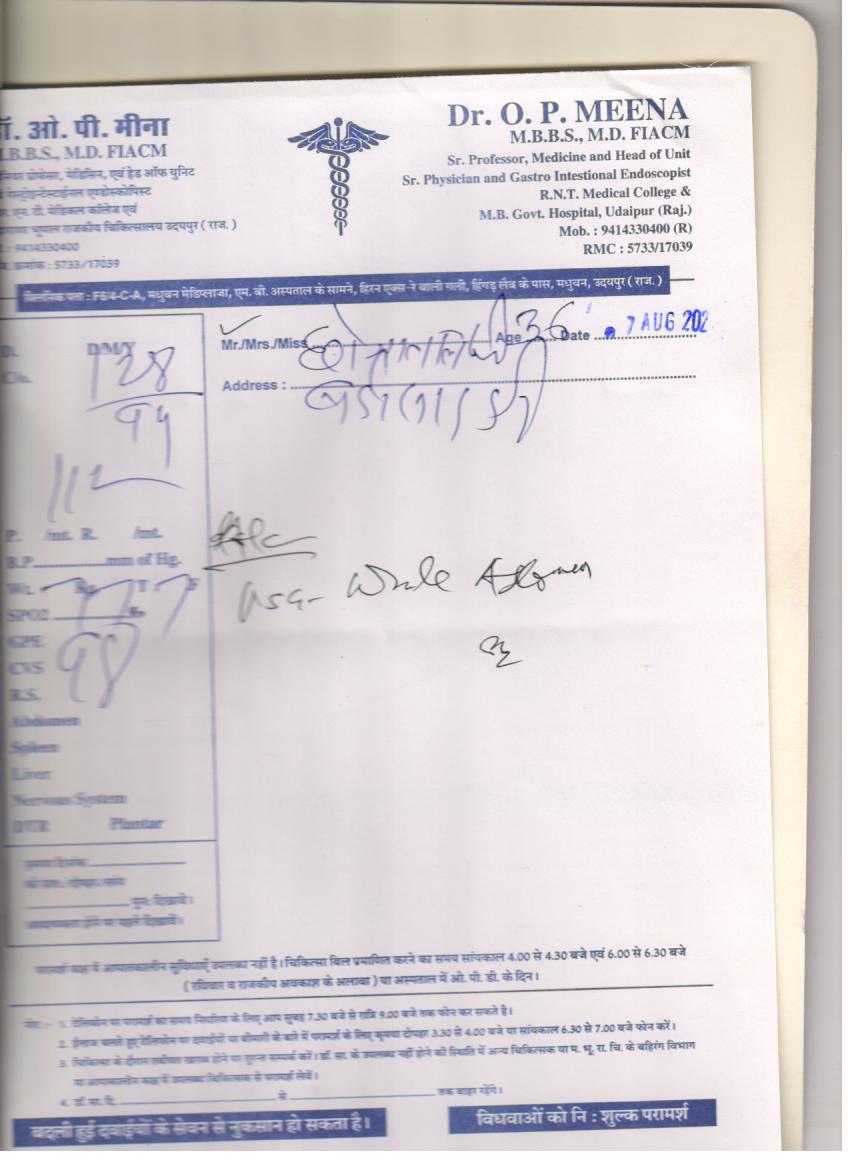 ॉ. ओ. पी. मीना
.B.B.S., M.D. FIACM
एवं हेड ऑफ युनिट
एन. टी. मेडिकल कॉलेज एवं
राजकीय चिकित्सालय उदयपुर ( राज. )
: 9414330400
: 5733/17039
Dr. O. P. MEENA
M.B.B.S., M.D. FIACM
Sr. Professor, Medicine and Head of Unit
Sr. Physician and Gastro Intestional Endoscopist
R.N.T. Medical College &
M.B. Govt. Hospital, Udaipur (Raj.)
Mob. : 9414330400 (R)
RMC : 5733/17039
क्लिनिक पता : F6/4-C-A, मधुवन मेडिप्लाजा, एम. बी. अस्पताल के सामने, हिरन एक्स-रे वाली गली, हिंगड़ लैब के पास, मधुवन, उदयपुर ( राज. )
D/M/Y
Mr./Mrs./Miss Age 36 Date 7 AUG 202
Address :
128
P. /mt. R. /mt.
B.P. mm of Hg.
SPO2
GPE
CVS
R.S.
Abdomen
Spleen
Liver
Nervous System
Plantar
USG- Whole Abdomen
पुनः दिखावें।
आवश्यकता होने पर पहले दिखावें।
परामर्श कक्ष में आपातकालीन सुविधाएँ उपलब्ध नहीं है। चिकित्सा बिल प्रमाणित करने का समय सांयकाल 4.00 से 4.30 बजे एवं 6.00 से 6.30 बजे
( रविवार व राजकीय अवकाश के अलावा ) या अस्पताल में ओ. पी. डी. के दिन।
नोट :- 1. टेलिफोन पर परामर्श का समय निर्धारित के लिए आप सुबह 7.30 बजे से रात्रि 9.00 बजे तक फोन कर सकते है।
2. ईलाज चलते हुए टेलिफोन पर दवाईयों या बीमारी के बारे में परामर्श के लिए कृपया दोपहर 3.30 से 4.00 बजे या सांयकाल 6.30 से 7.00 बजे फोन करें।
3. चिकित्सा के दौरान तबीयत खराब होने पर तुरन्त सम्पर्क करें। डॉ. सा. के उपलब्ध नहीं होने की स्थिति में अन्य चिकित्सक या म. भू. रा. चि. के बहिरंग विभाग
या आपातकालीन कक्ष में उपलब्ध चिकित्सक से परामर्श लेवें।
4. डॉ. सा. दि. से तक बाहर रहेंगे।
बदली हुई दवाईयों के सेवन से नुकसान हो सकता है।
विधवाओं को नि : शुल्क परामर्श